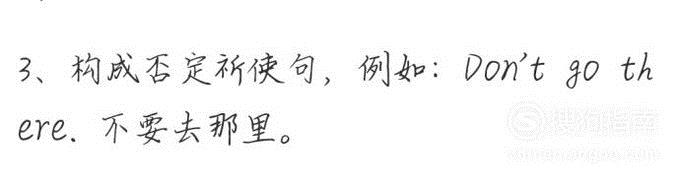 3、构成否定祈使句，例如：Don't go th
ere. 不要去那里。
搜狗指南